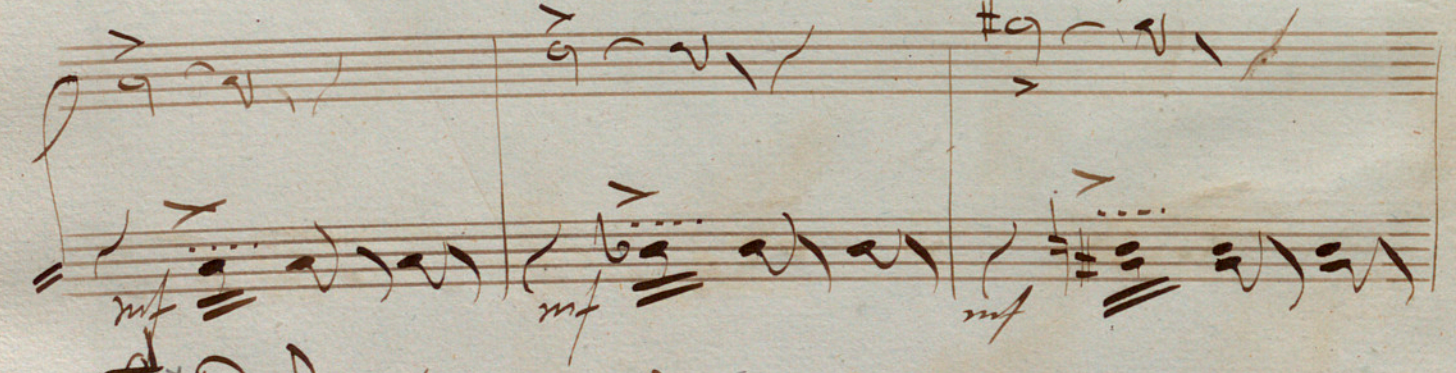 mf mf mf